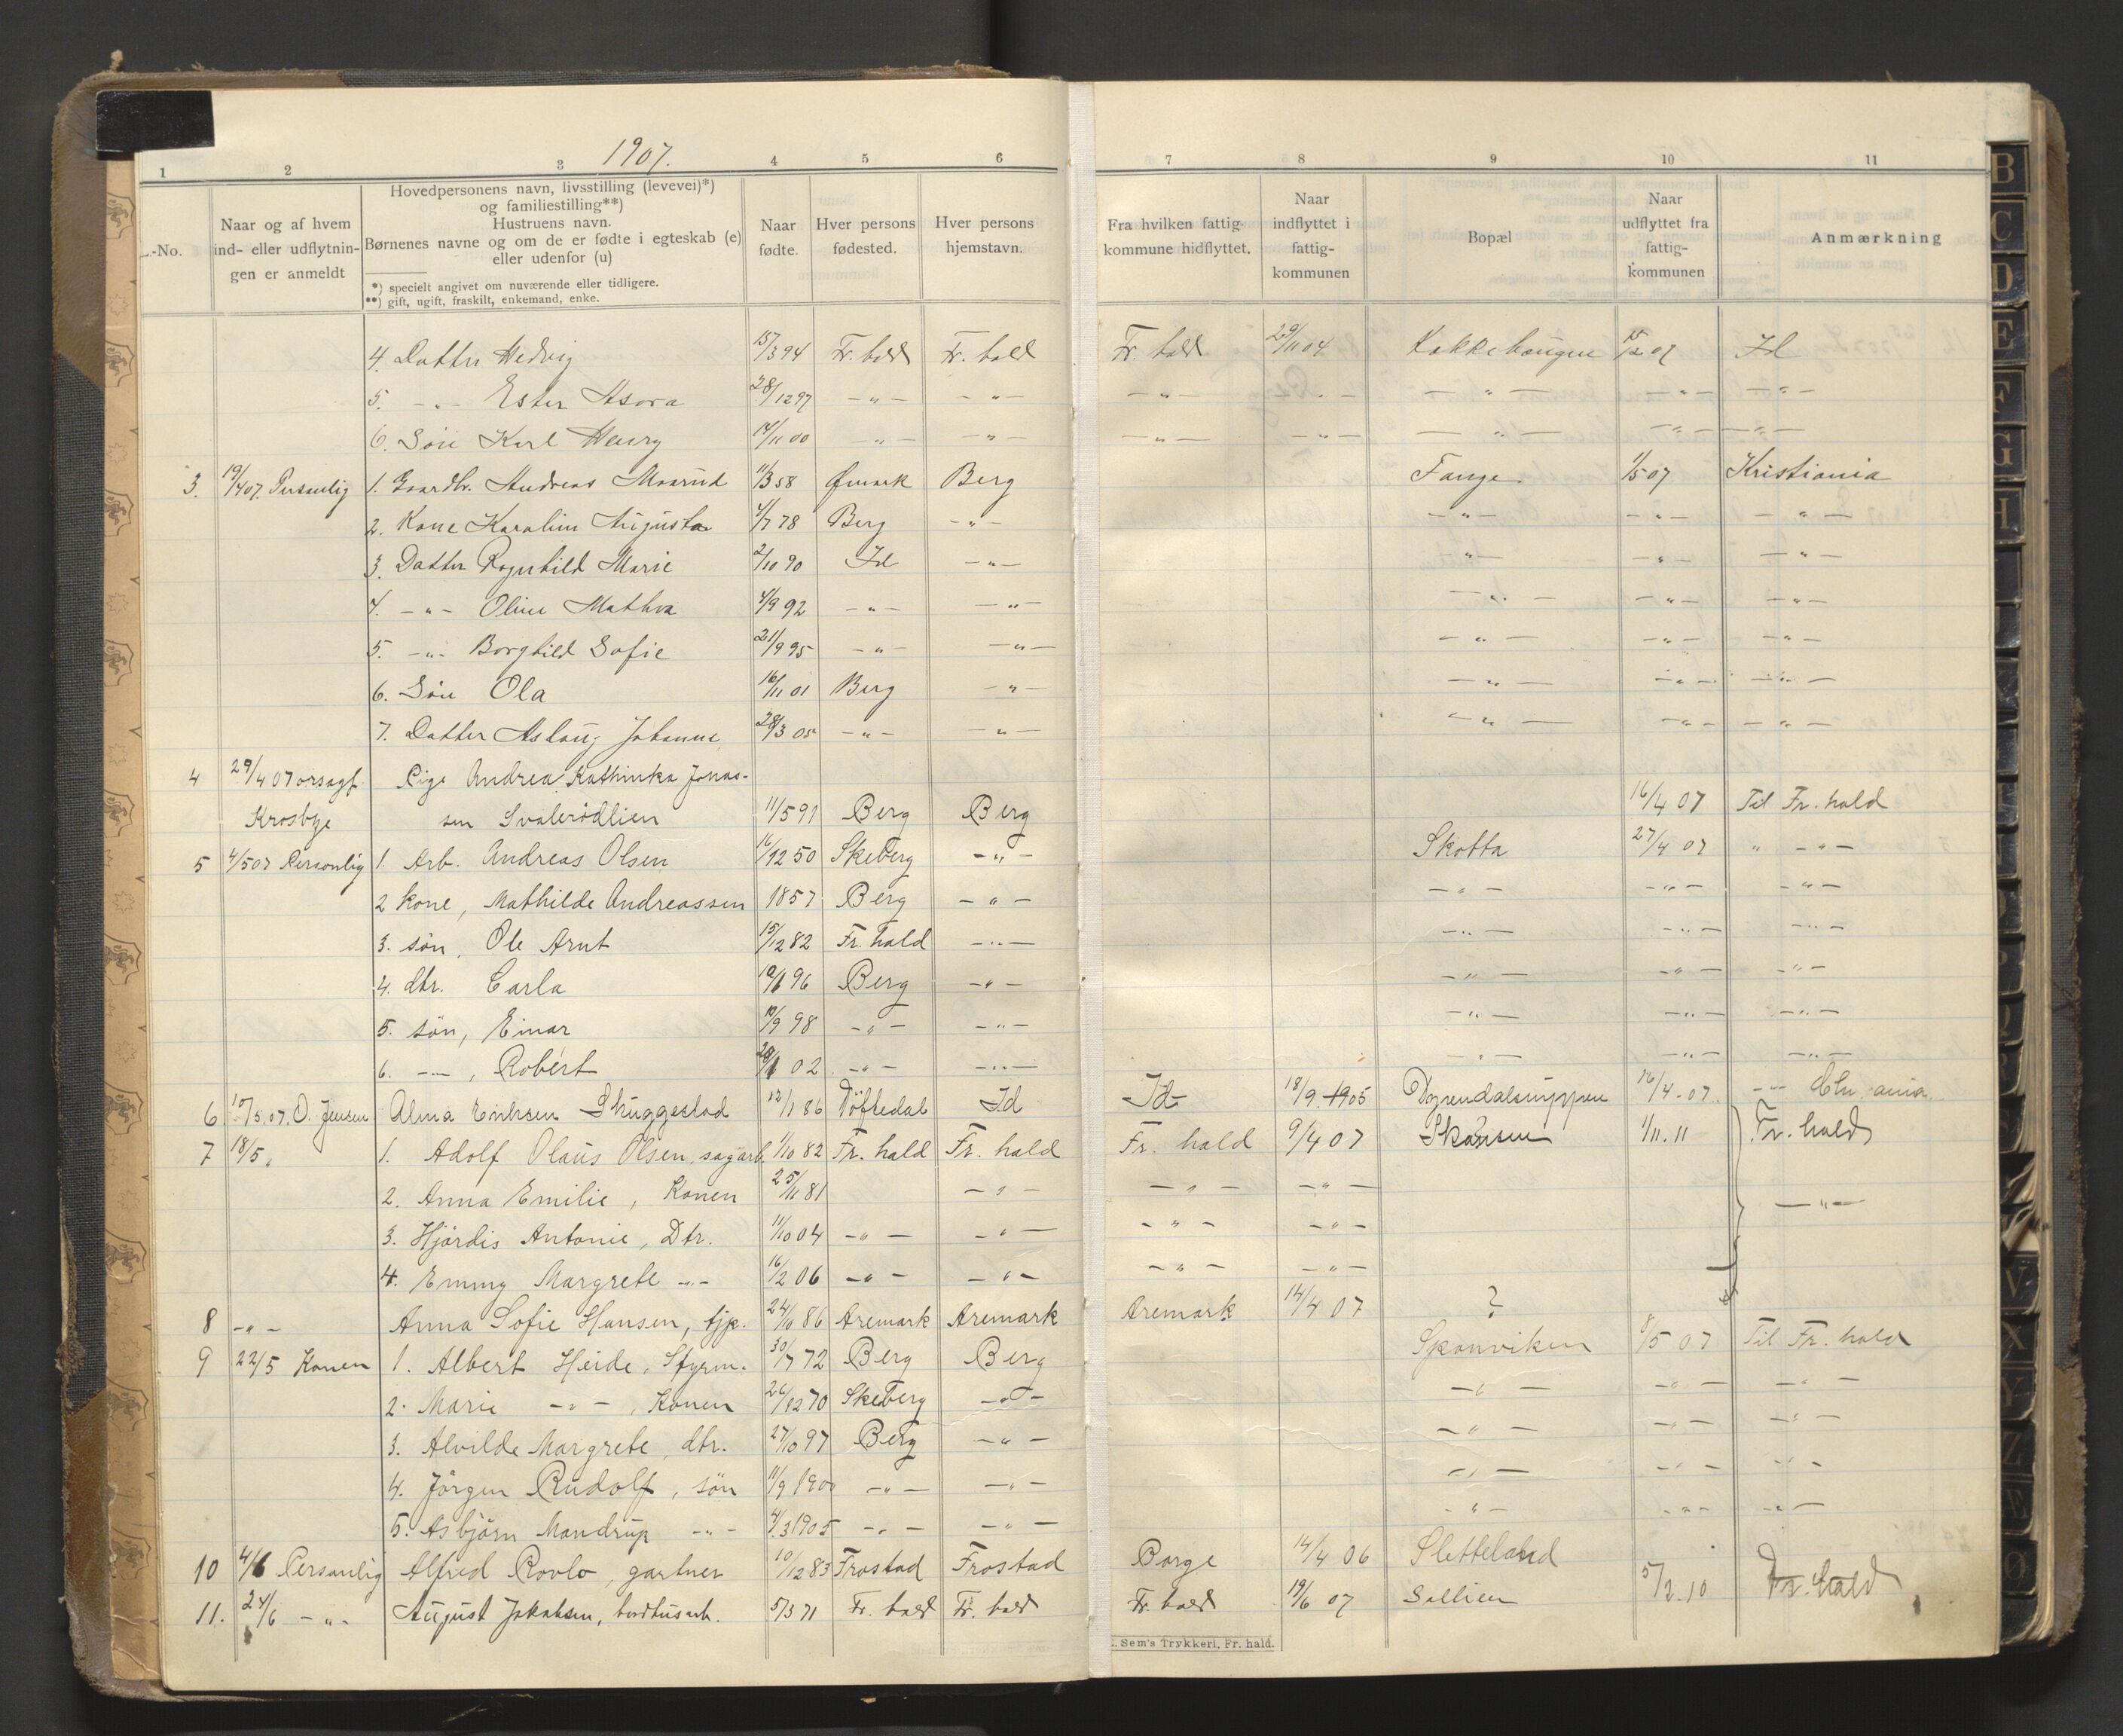 1907.
1 2 3 4 5 6 7 8 9 10 11
-No.
Naar og af hvem ind- eller udflytnin- gen er anmeldt
Hovedpersonens navn, livsstilling (levevei)*) og familiestilling**)
Hustruens navn.
Børnenes navne og om de er fødte i egteskab (e) eller udenfor (u)
*) specielt angivet om nuværende eller tidligere.
**) gift, ugift, fraskilt, enkemand, enke.
Naar fødte.
Hver persons fødested.
Hver persons hjemstavn.
Fra hvilken fattig- kommune hidflyttet.
Naar indflyttet i fattig- kommunen
Bopæl
Naar udflyttet fra fattig- kommunen
Anmærkning
4. Datter Hedvig 15/3 94 Fr. hald Fr. hald Fr. hald 29/11 04 15/2 07 Id
5. -„- Ester Asora 28/12 97 -„- -„- -„- -„- -„- -„- -„-
6. Søn Karl Henry 14/11 00 -„- -„- -„- -„- -„- -„- -„-
3. 19/4 07 Personlig 1. Gaardbr. Andreas Maarud 11/3 58 Ømark Berg Fange 1/5 07 Kristiania
2. Kone Karoline Augusta 4/7 78 Berg -„- -„- -„- -„-
3. Datter Ragnhild Marie 2/10 90 Id -„- -„- -„- -„-
4. -„- Oline Mathea 4/9 92 -„- -„- -„- -„- -„-
5. -„- Borghild Sofie 21/9 95 -„- -„- -„- -„- -„-
6. Søn Ola 16/11 01 Berg -„- -„- -„- -„-
7. Datter Aslaug Johanne 28/3 05 -„- -„- -„- -„- -„-
4 29/4 07 Pige Andrea Kathinka Jonas-
Krosbye sen Svalerødlien 11/5 91 Berg Berg 16/4 07 Til Fr. hald
5 4/5 07 Personlig 1. Arb. Andreas Olsen 6/12 50 Skeberg -„- Skotta 27/4 07 „ -„-
2 kone, Mathilde Andreassen 1857 Berg -„- -„- -„- -„-
3. søn, Ole Arnt 15/12 82 Fr. hald -„- -„- -„- -„-
4. dtr. Carla 96 Berg -„- -„- -„- -„-
5. søn, Einar 98 -„- -„- -„- -„- -„-
6. -„-, Robert 02 -„- -„- -„- -„- -„-
6 10/5. 07. O. Jensen Alma Eriksen Skuggestad 12/1 86 Töftedal Id Id 18/9 1905 16/4-07. -„- Chr.ania
7 18/5 „ 1. Adolf Olaus Olsen, sagarb. 1/10 82 Fr. hald Fr. hald Fr. hald 9/4 07 Skansen 1/11. 11 Fr. hald
2. Anna Emilie, Konen 25/11 81 -„- -„- -„- -„-
3. Hjördis Antonie, Dtr. 11/10 04 -„- -„- -„- -„-
4. Emmy Margrete -„- 16/2 06 -„- -„- -„- -„-
8 -„- Anna Sofie Hansen, tjp. 24/10 86 Aremark Aremark Aremark 14/4 07 ?
9 22/5 Konen 1. Albert Heide, Styrm. 30/7 72 Berg Berg Skonviken 8/5 07 Til Fr. hald
2. Marie -„-, Konen 26/12 70 Skeberg -„- -„- -„- -„-
3. Alvilde Margrete, dtr. 27/10 97 Berg -„- -„- -„- -„-
4. Jörgen Rudolf, søn 11/9 1900 -„- -„- -„- -„- -„-
5. Asbjörn Mandrup -„- 4/3 1905 -„- -„- -„- -„- -„-
10 4/6 Personlig Alfred Rovlo, gartner 10/12 83 Frostad Frostad Borge 14/4 06 Sletteland
11. 24/6 -„- August Jakobsen, 5/3 71 Fr. hald Fr. hald Fr. hald 19/6 07 Sollien 5/2. 10 Fr. hald
Sem's Trykkeri, Fr. hald.
B
C
D
E
F
G
H
V
X
Y
Z
Æ
Ø